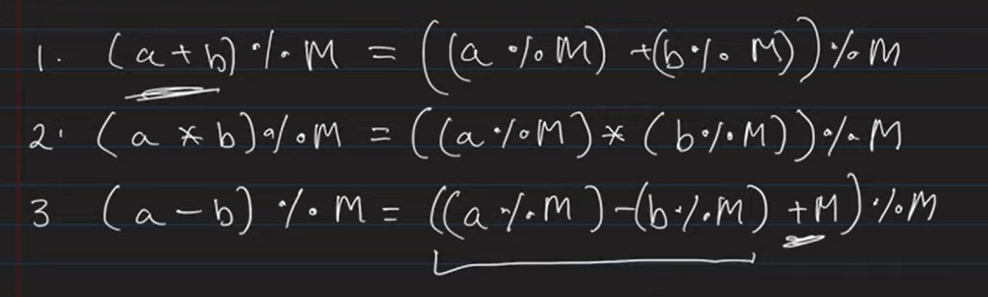 1. (a+b) % M = ((a % M) +(b % M)) % M
2. (a * b) % M = ((a % M) * (b % M)) % M
3 (a - b) % M = ((a % M) -(b % M) +M) % M